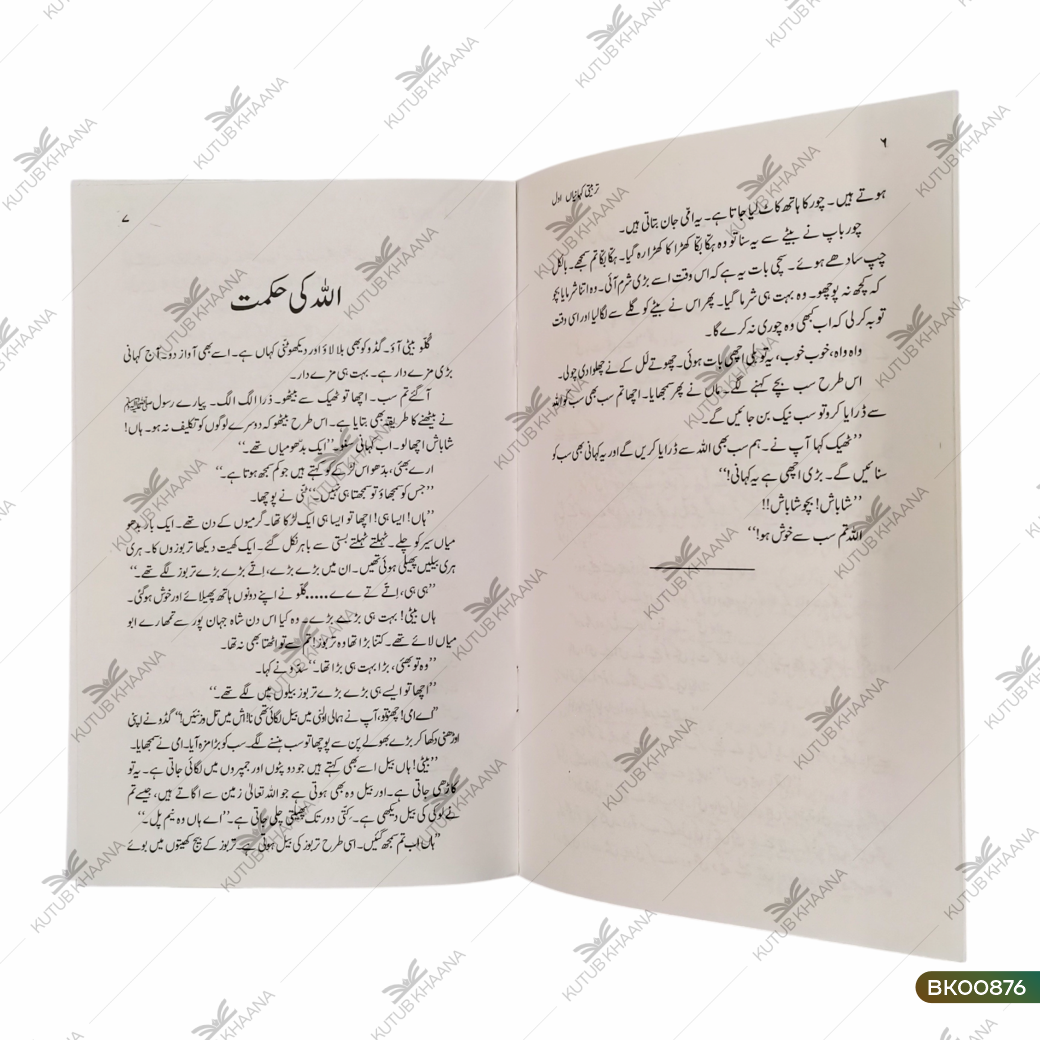 ۶
تربیتی کہانیاں اول
ہوتے ہیں۔ چور کا ہاتھ کاٹ لیا جاتا ہے۔ یہ امّی جان بتاتی ہیں۔
چور باپ نے بیٹے سے یہ سنا تو وہ ہکا بکّا کھڑا کا کھڑا رہ گیا۔ ہکّا بکّا تم سمجھے۔ بالکل
چپ سادھے ہوئے۔ سچی بات یہ ہے کہ اس وقت اسے بڑی شرم آئی۔ وہ اتنا شرمایا بچو
کہ کچھ نہ پوچھو۔ وہ بہت ہی شرما گیا۔ پھر اس نے بیٹے کو گلے سے لگا لیا اور اسی وقت
توبہ کر لی کہ اب کبھی وہ چوری نہ کرے گا۔
واہ واہ، خوب خوب، یہ تو بلی اچھی بات ہوئی۔ چھوتے لَل کے نے چھلوا دی چولی۔
اس طرح سب بچے کہنے لگے۔ ماں نے پھر سمجھایا۔ اچھا تم سب بھی سب کو اللہ
سے ڈرایا کرو تو سب نیک بن جائیں گے۔
’’ٹھیک کہا آپ نے۔ ہم سب بھی اللہ سے ڈرایا کریں گے اور یہ کہانی بھی سب کو
سنائیں گے۔ بڑی اچھی ہے یہ کہانی!‘‘
’’شاباش! بچو شاباش!!
اللہ تم سب سے خوش ہو!‘‘
۷
اللہ کی حکمت
گلّو بیٹی آؤ۔ گڈو کو بھی بلا لاؤ اور دیکھو مُنّی کہاں ہے۔ اسے بھی آواز دو۔ آج کہانی
بڑی مزے دار ہے۔ بہت ہی مزے دار۔
آ گئے تم سب۔ اچھا تو ٹھیک سے بیٹھو۔ ذرا الگ الگ۔ پیارے رسول ﷺ
نے بیٹھنے کا طریقہ بھی بتایا ہے۔ اس طرح بیٹھو کہ دوسرے لوگوں کو تکلیف نہ ہو۔ ہاں!
شاباش اچھا لو۔ اب کہانی سنو۔ ’’ایک بدّھو میاں تھے۔‘‘
ارے بھئی، بدّھو اس لڑکے کو کہتے ہیں جو کم سمجھ ہوتا ہے۔‘‘
’’جس کو سمجھاؤ تو سمجھتا ہی نہیں۔‘‘ مُنّی نے پوچھا۔
’’ہاں! ایسا ہی! اچھا تو ایسا ہی ایک لڑکا تھا۔ گرمیوں کے دن تھے۔ ایک بار بدھو
میاں سیر کو چلے۔ ٹہلتے ٹہلتے بستی سے باہر نکل گئے۔ ایک کھیت دیکھا تربوزوں کا۔ ہری
ہری بیلیں پھیلی ہوئی تھیں۔ ان میں بڑے بڑے، اِتّے بڑے بڑے تربوز لگے تھے۔‘‘
’’ہی ہی، اِتّے تے ے ے..... گلّو نے اپنے دونوں ہاتھ پھیلائے اور خوش ہو گئی۔
ہاں بیٹی! بہت ہی بڑے بڑے۔ وہ کیا اس دن شاہ جہان پور سے تمھارے ابو
میاں لائے تھے۔ کتنا بڑا تھا وہ تربوز! تم سے تو اٹھتا بھی نہ تھا۔
’’وہ تو بھئی، بڑا بہت ہی بڑا تھا۔‘‘ سدّو نے کہا۔
’’اچھا تو ایسے ہی بڑے بڑے تربوز بیلوں میں لگے تھے۔‘‘
’’اے امی! چھنو تو، آپ نے ہمالی اولنی میں بیل لگائی تھی نا! اش میں تل وز نئیں!‘‘ گڈو نے اپنی
اوڑھنی دکھا کر بڑے بھولے پن سے پوچھا تو سب ہنسنے لگے۔ سب کو بڑا مزہ آیا۔ امی نے سمجھایا۔
’’بیٹی! ہاں بیل اسے بھی کہتے ہیں جو دوپٹوں اور جمپروں میں لگائی جاتی ہے۔ یہ تو
کاڑھی جاتی ہے۔ اور بیل وہ بھی ہوتی ہے جو اللہ تعالیٰ زمین سے اگاتے ہیں، جیسے تم
نے لوکی کی بیل دیکھی ہے۔ کتنی دور تک پھیلتی چلی جاتی ہے۔‘‘ اے ہاں وہ نیم پل۔‘‘
’’ہاں اب تم سمجھ گئیں۔ اسی طرح تربوز کی بیل ہوتی ہے۔ تربوز کے بیج کھیتوں میں بوئے
KUTUB KHAANA
BK00876